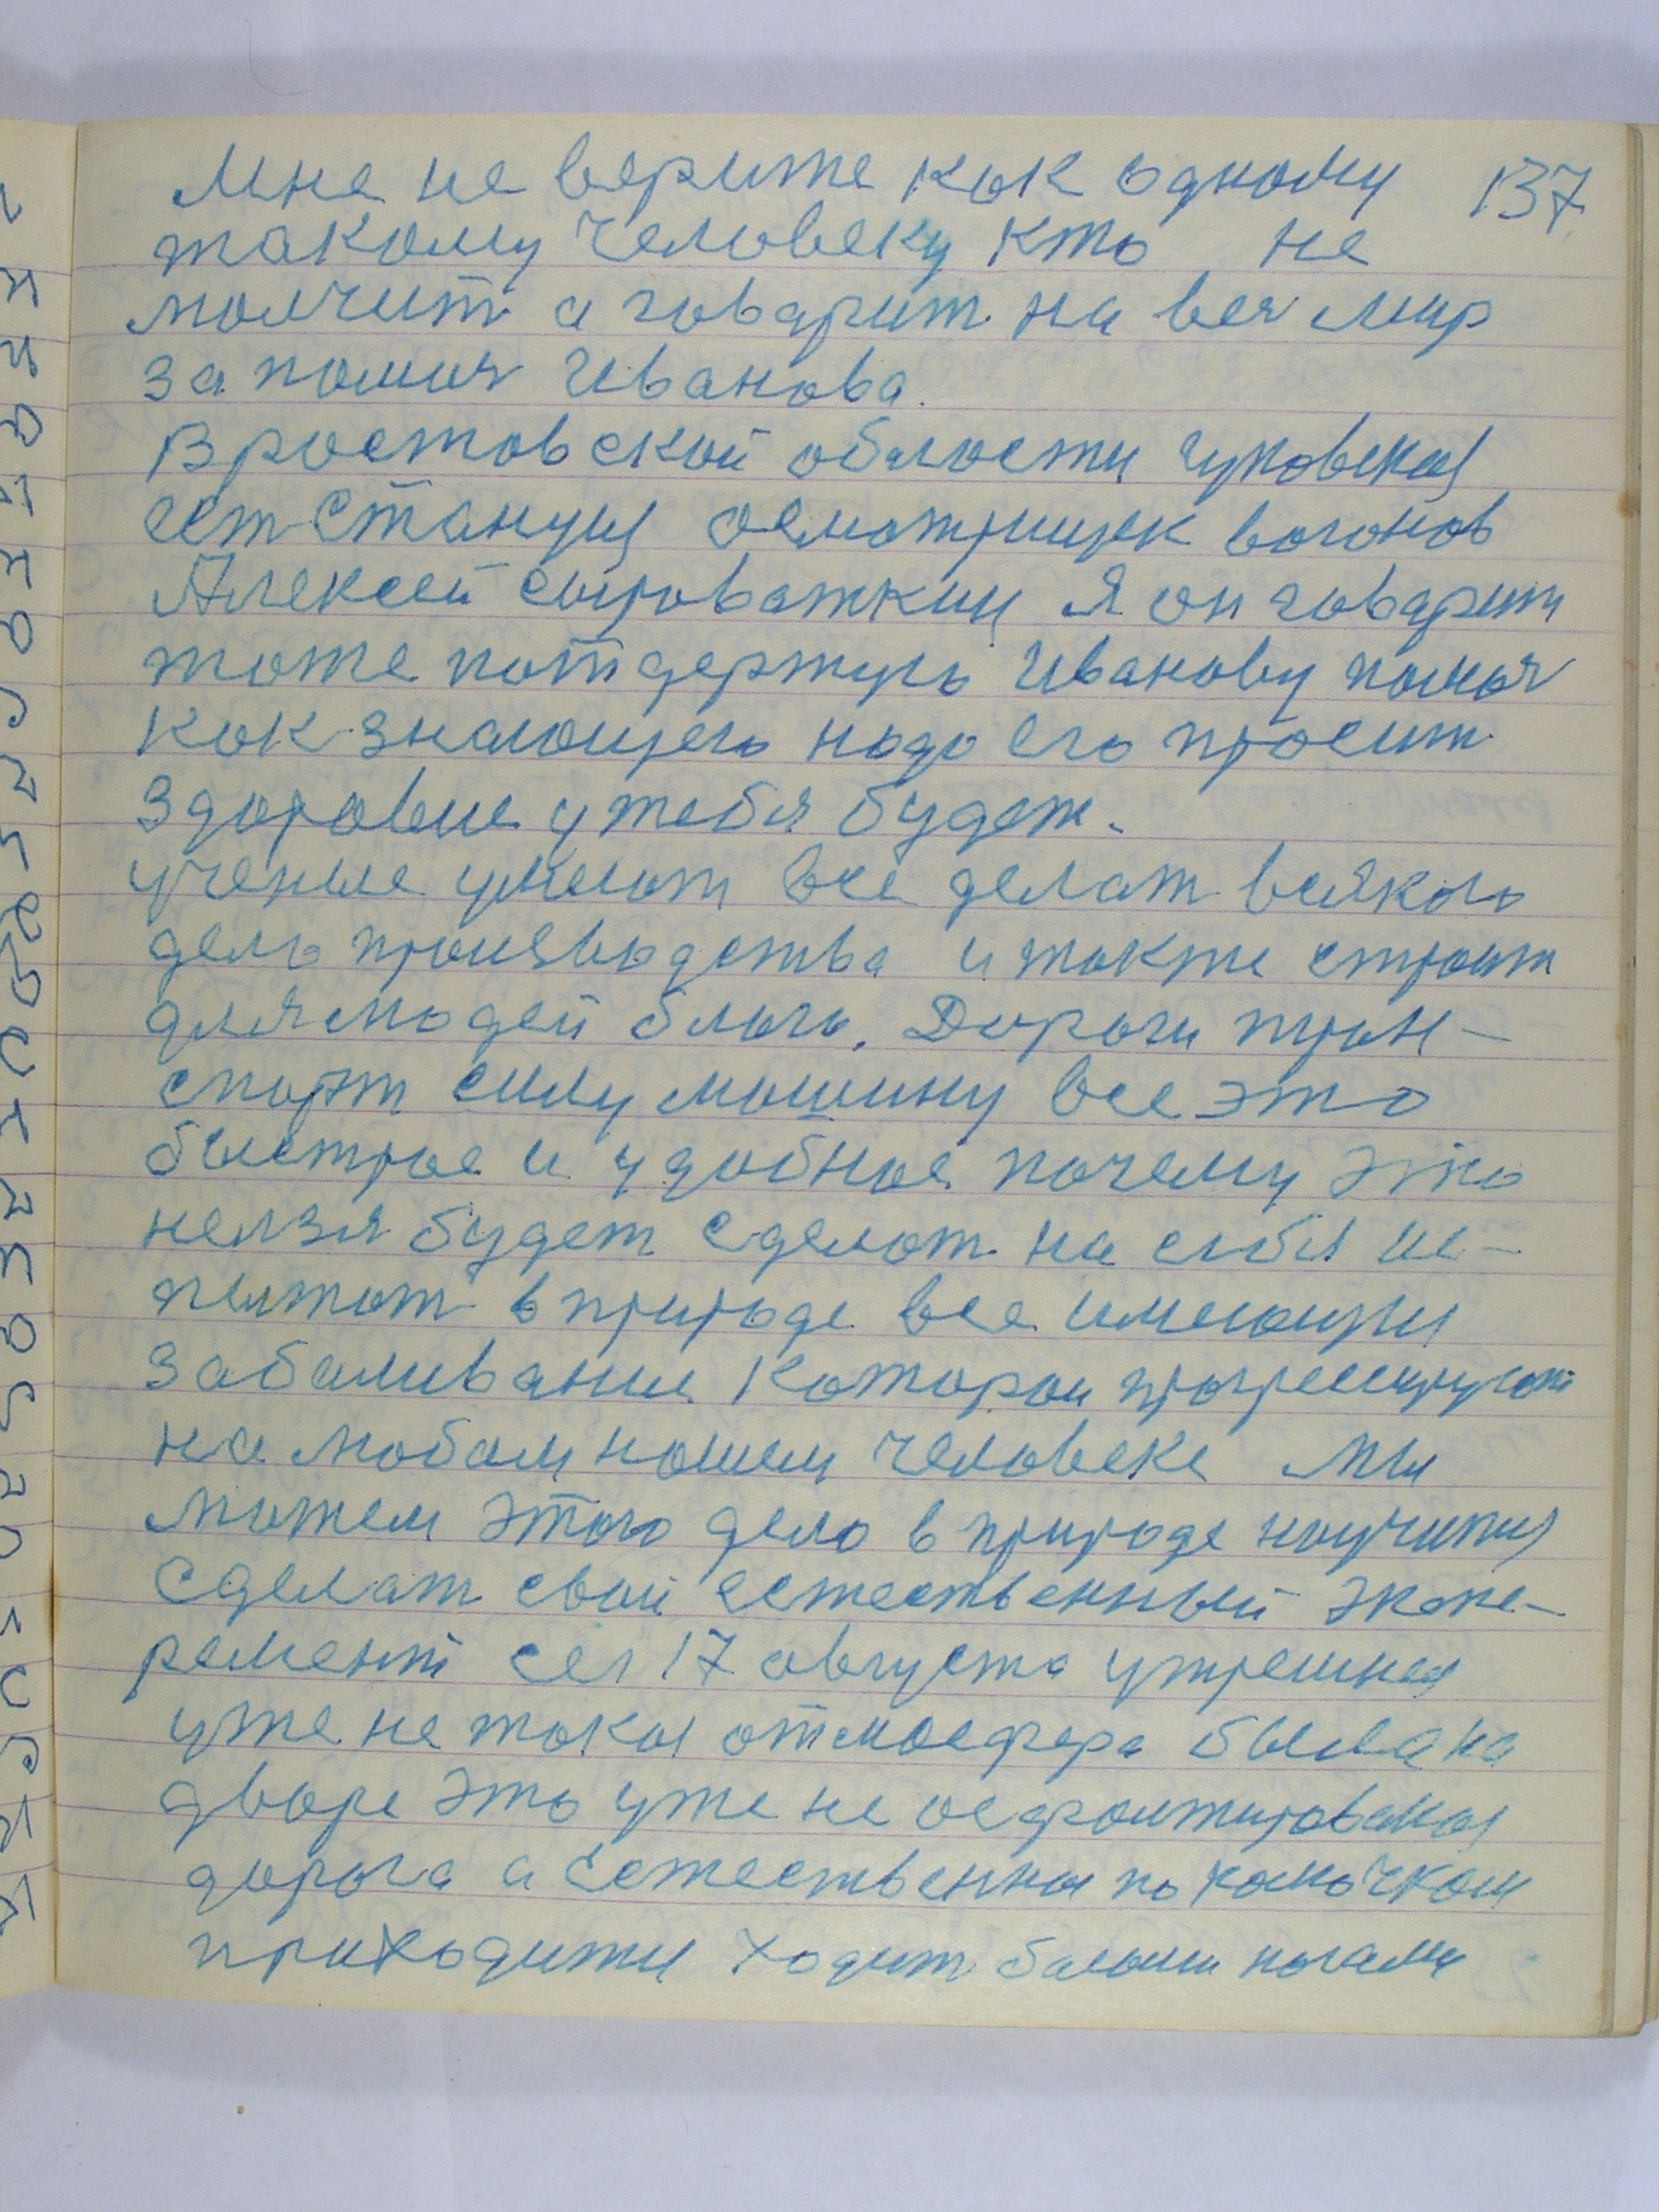 Мне не верите как одному 137
такому человеку кто не
молчит а говарит на вея мир
за помич Иванова.
В ростовской облости гуковская
ест станция осмотрищек вагонов
Алексей сыроваткин я он говарит
тоже потдержую Иванову помоч
как знающего надо его просит
здоровие у тебя будет.
ученые умеют все делат всякого
дело произвадства и также строит
для людей блага. Дороги тран-
спорт силу машину все это
быстрое и удобное почему это
нелзя будет сделат на себя ис-
пытат в природе все имеющии
забаливание каторои прогресируют
на любом нашем человеке мы
можем этого дело в природе научится
сделат свой естественный экспе-
ремент сел 17 августа утрешная
уже не такая отмосфера была на
дворе это уже не осфоитированая
дорога а естественная по камочкам
приходити ходит босыми ногами